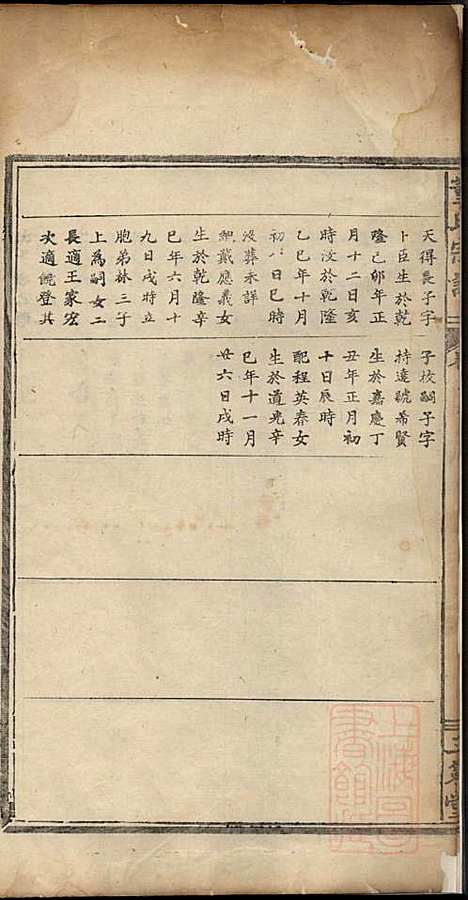 天得長子字
卜臣生於乾
隆己卯年正
月十二日亥
時沒於乾隆
乙巳年十月
初八日巳時
沒葬未詳
配戴應義女
生於乾隆辛
巳年六月十
九日戌時立
胞弟林三子
上為嗣女二
長適王家宏
次適饒登其
子校嗣子字
持達號希賢
生於嘉慶丁
丑年正月初
十日辰時
配程英春女
生於道光辛
巳年十一月
廿六日戌時
上海圖書館藏